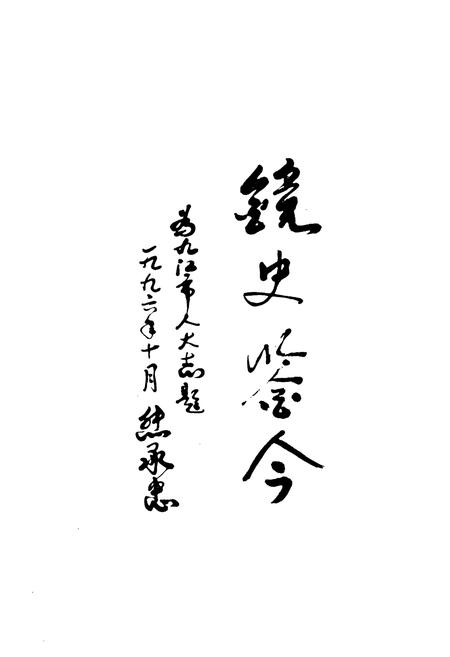 鏡史鉴今
为九江市人大志题
一九九六年十月
熊承忠